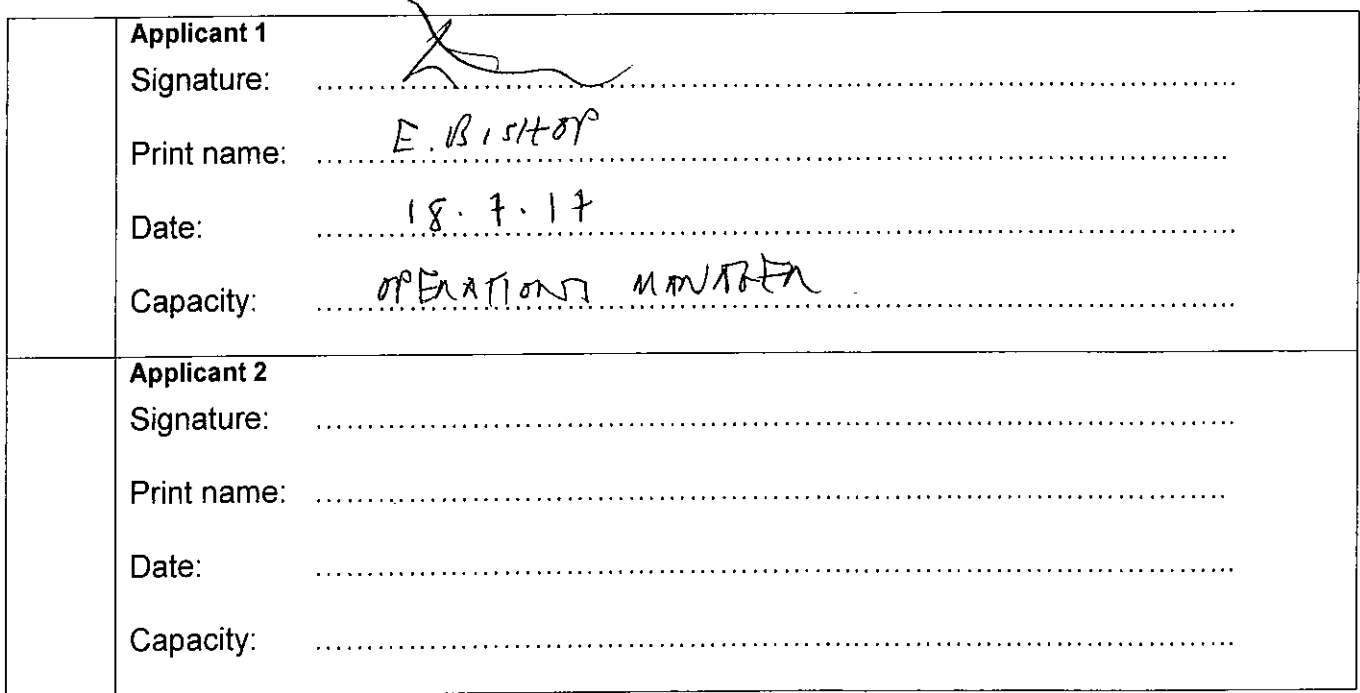 Applicant 1
Signature:
Print name: E. BISHOP
Date: 18.7.17
Capacity: OPERATIONS MANAGER
Applicant 2
Signature:
Print name:
Date:
Capacity: